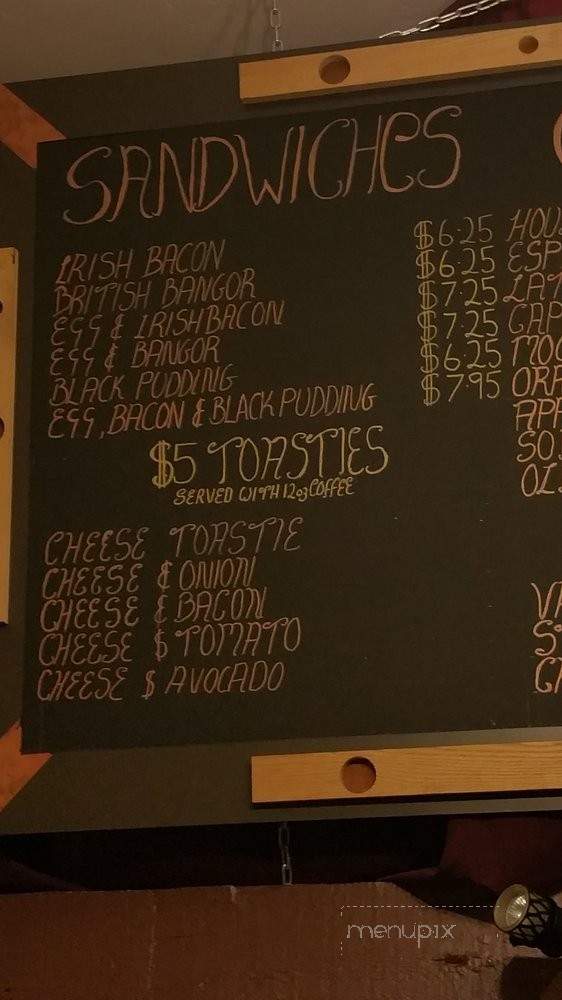 SANDWICHES
IRISH BACON $6.25
BRITISH BANGOR $6.25
EGG & IRISH BACON $7.25
EGG & BANGOR $7.25
BLACK PUDDING $6.25
EGG, BACON & BLACK PUDDING $7.95
$5 TOASTIES
SERVED WITH 12oz COFFEE
CHEESE TOASTIE
CHEESE & ONION
CHEESE & BACON
CHEESE $ TOMATO
CHEESE $ AVOCADO
HOU
ESP
LAT
CAP
MOC
ORA
APP
SO
menupix